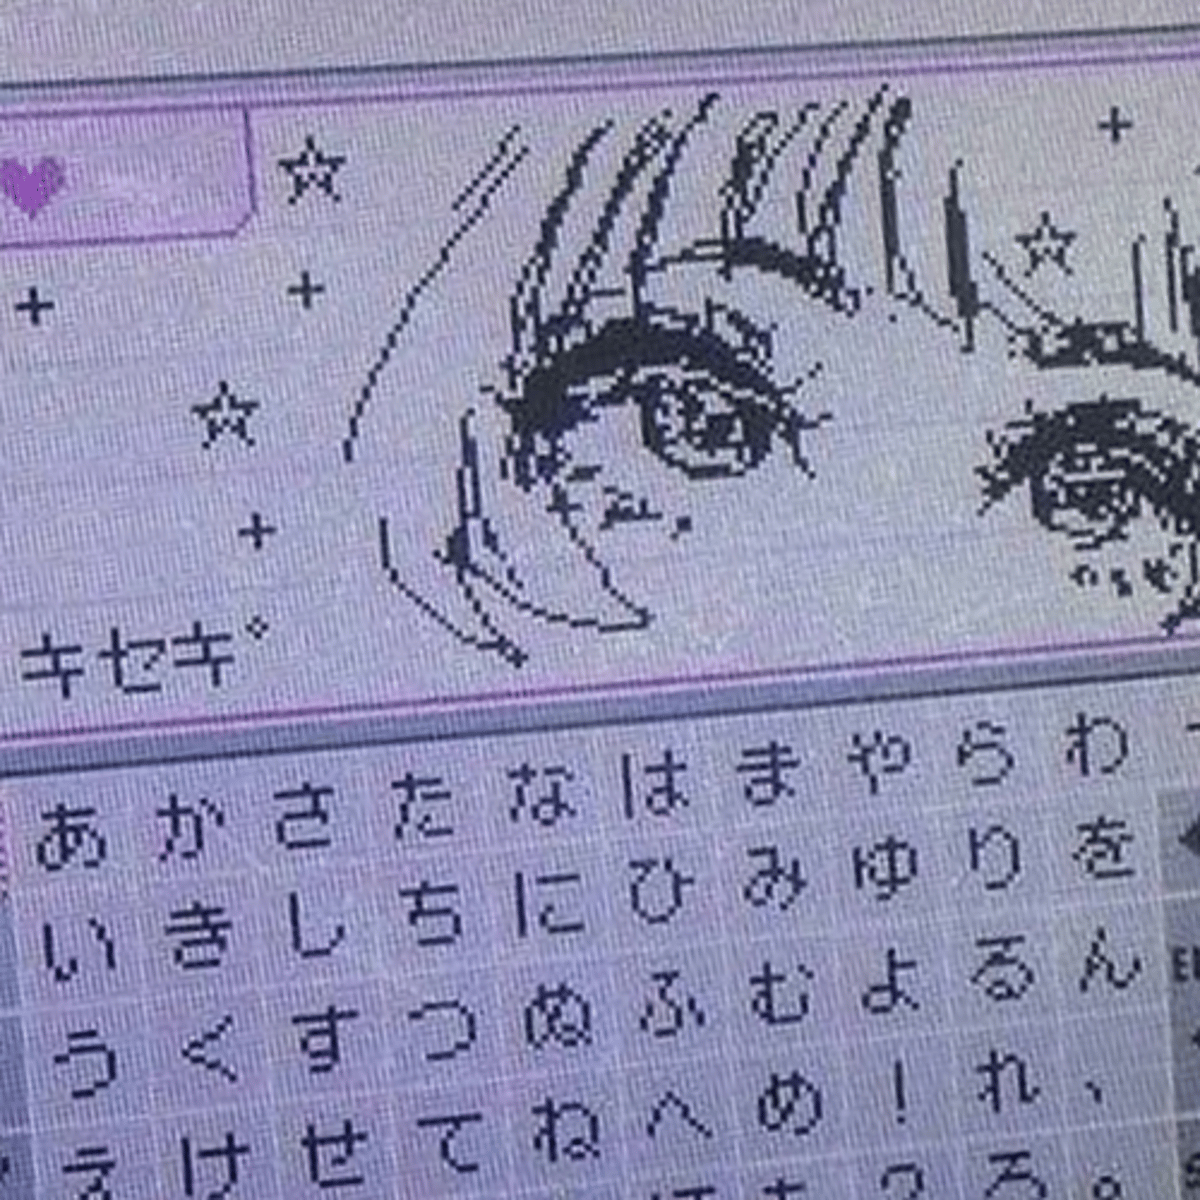 キセキ°
あかさたなはまやらわ
いきしちにひみゆりを
うくすつぬふむよるん
えけせてねへめ！れ、